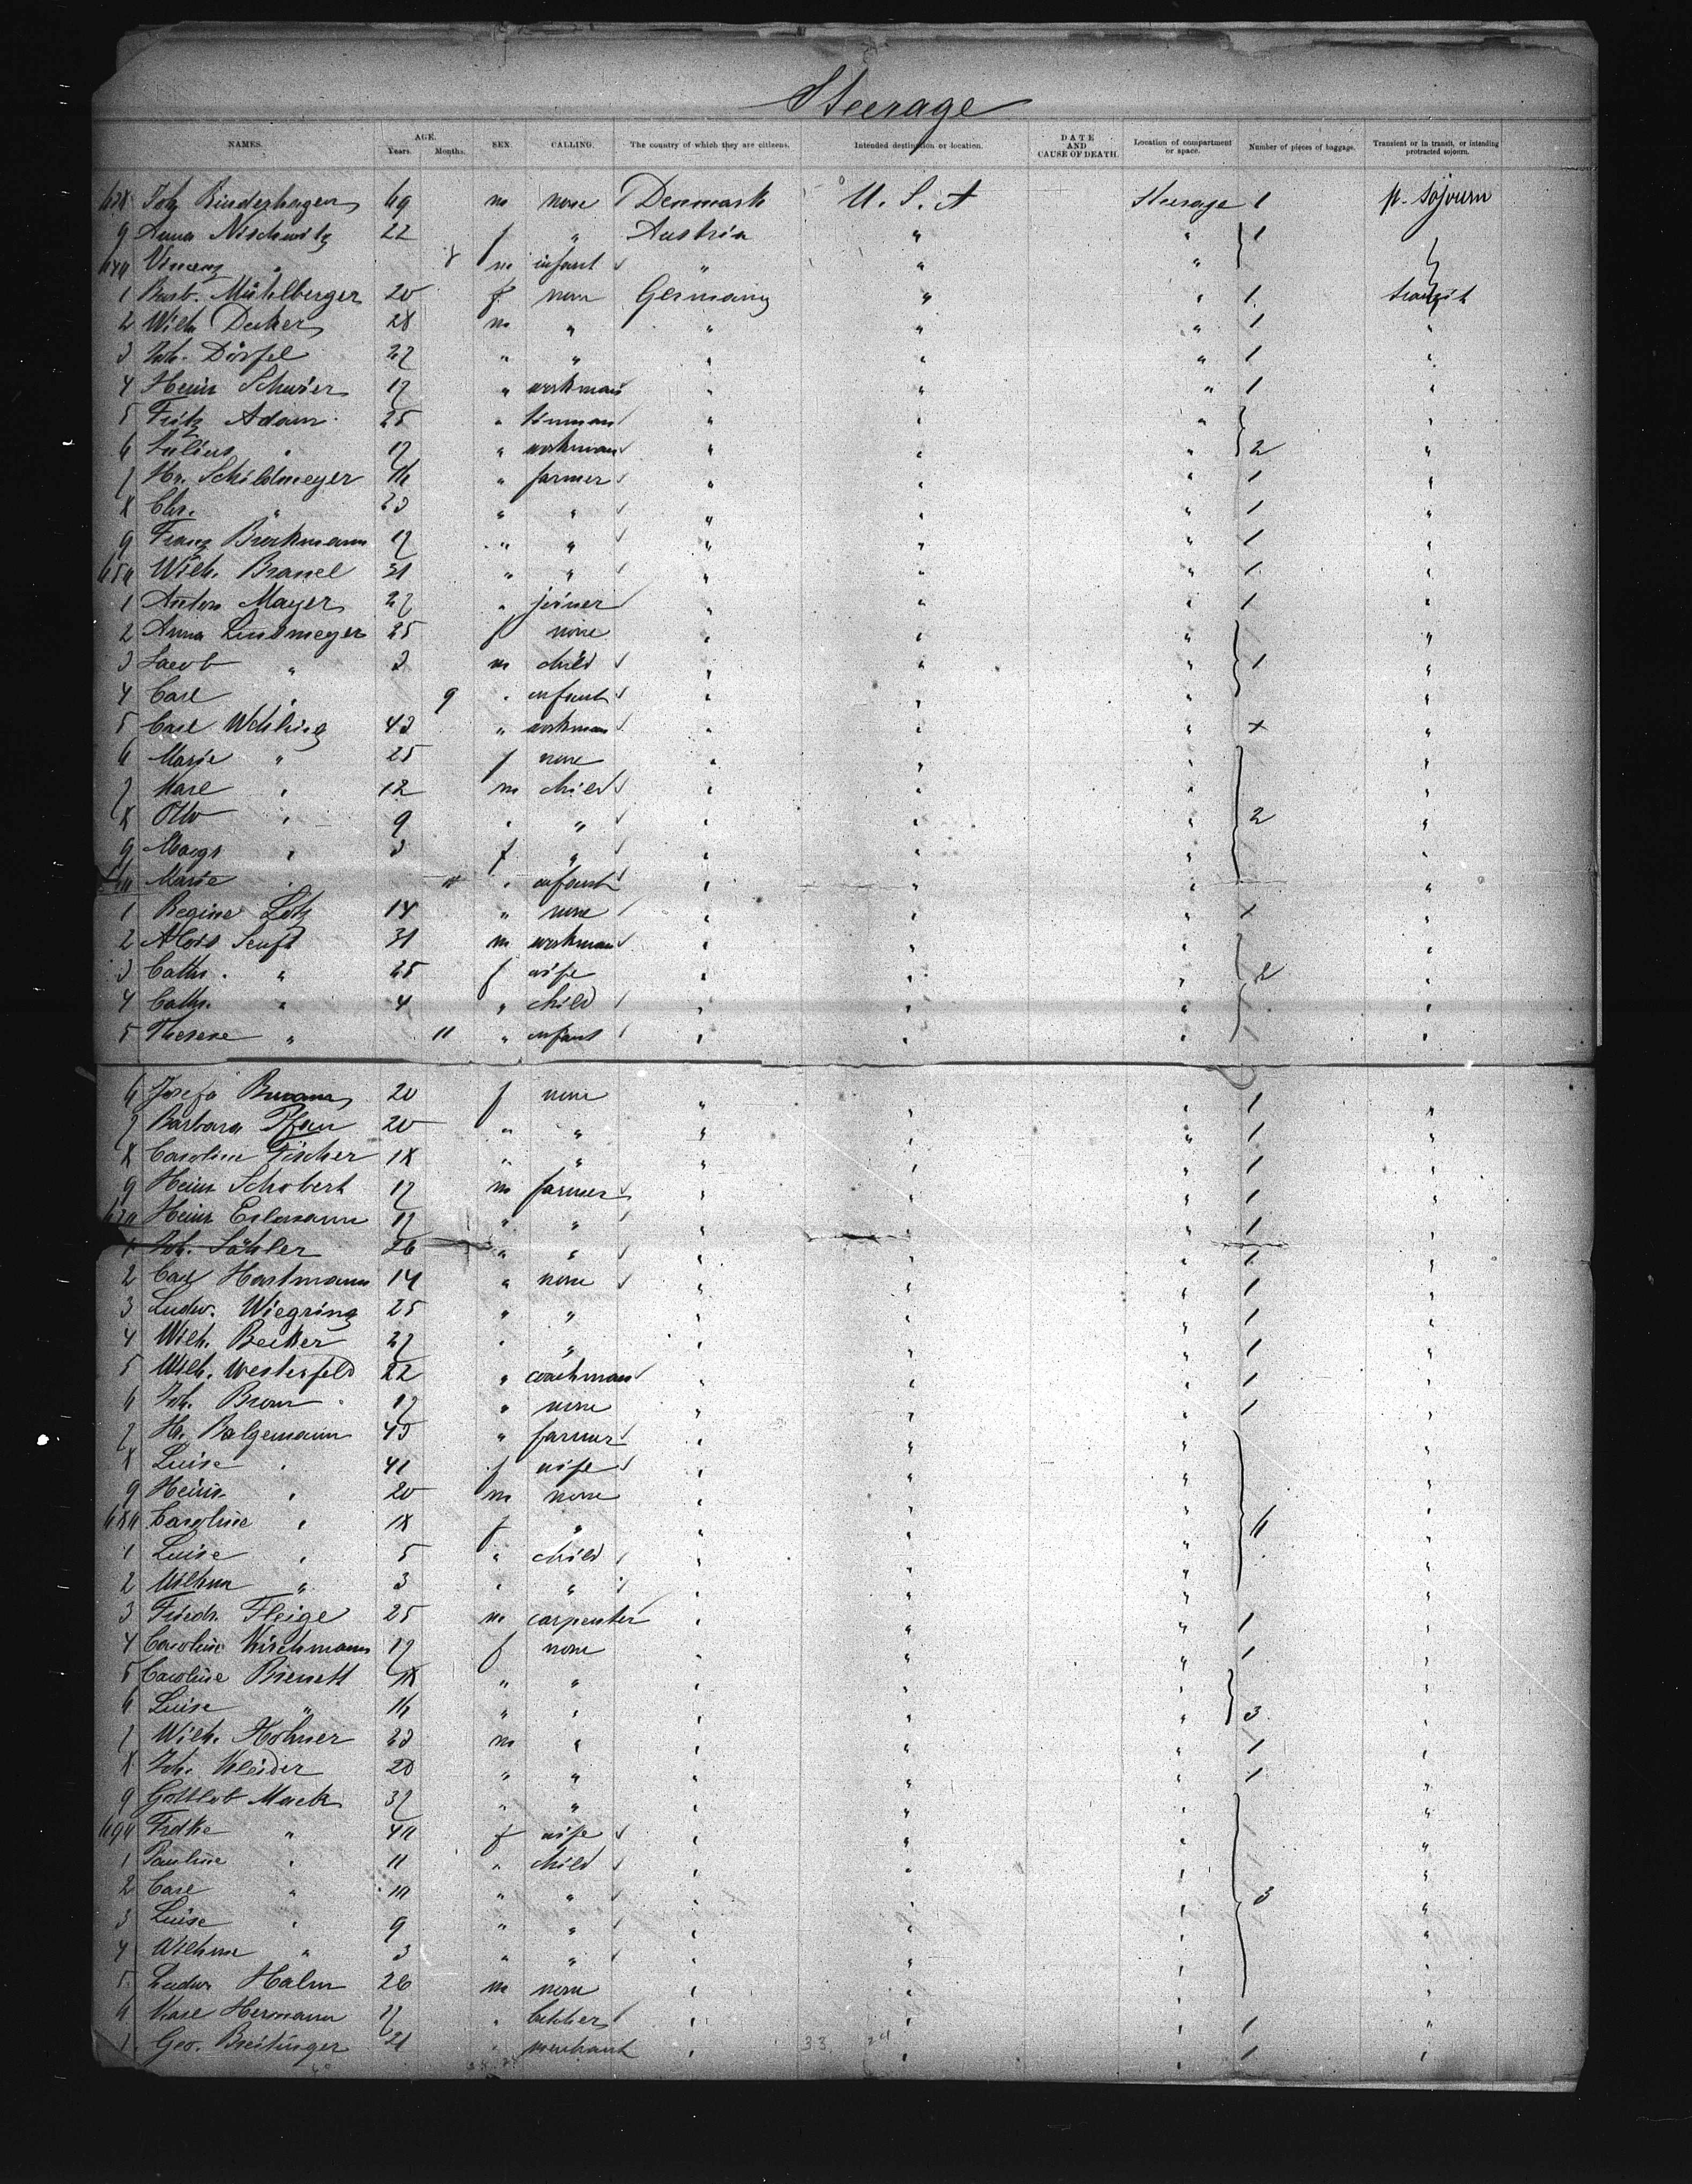 Steerage
NAMES. AGE. Years. Months. SEX. CALLING. The country of which they are citizens. Intended destination or location. DATE AND CAUSE OF DEATH. Location of compartment or space. Number of pieces of baggage. Transient or in transit, or intending protracted sojourn.
638 Joh Rinderhagen 69 m none Denmark U. S. A Steerage 1 p. sojourn
9 Anna Nischwitz 22 f " Austria " " 1
640 Vincenz " m infant " " "
1 Barb. Mühlberger 20 f none Germany " " 1 transit
2 Wilh Decker 28 m " " " " 1 "
3 Joh. Dörfel 27 " " " " " 1 "
4 Heinr Schwier 17 " workman " " " 1 "
5 Fritz Adam 25 " " " " "
6 Julius " 17 " workman " " " 2 "
7 Hr. Schildmeyer 16 " farmer " " " 1 "
8 Chr. " 23 " " " " " 1 "
9 Franz Brockmann 17 " " " " " 1 "
650 Wilh. Brasel 31 " " " " " 1 "
1 Anton Mayer 27 " joiner " " " 1 "
2 Anna Lindmeyer 25 f none " " " "
3 Jacob " 3 m child " " " 1 "
4 Carl " 9 " infant " " " "
5 Carl Wehling 43 " workman " " " x "
6 Marie " 25 f none " " " "
7 Karl " 12 m child " " " "
8 Otto " 9 " " " " " 2 "
9 Margr " 3 f " " " " "
660 Marie " " infant " " " "
1 Regine Lotz 14 " none " " " x "
2 Alois Senft 31 m workman " " " "
3 Cathr. " 25 f wife " " " 2 "
4 Cathr. " 4 " child " " " "
5 Therese " 11 " infant " " " "
6 Josefa 20 f none " " " 1 "
7 Barbara Pfau 20 " " " " " 1 "
8 Caroline Fischer 18 " " " " " 1 "
9 Heinr Schobert 17 m farmer " " " 1 "
670 Heinr 17 " " " " " 1 "
1 Joh. Sähler 26 " " " " " 1 "
2 Carl Hartmann 14 " none " " " 1 "
3 Ludw. Wiegring 25 " " " " " 1 "
4 Wilh. Becker 27 " " " " " 1 "
5 Wilh. Westerfeld 22 " coachman " " " 1 "
6 Joh. Braun 17 " none " " " 1 "
7 Hr. Balgemann 43 " farmer " " " "
8 Luise " 41 f wife " " " "
9 Heinr. " 20 m none " " " "
680 Caroline " 18 f " " " " 6 "
1 Luise " 5 " child " " " "
2 Wilhm " 3 " " " " " "
3 Friedr. Fleige 25 m carpenter " " " 1 "
4 Caroline Kirchmann 17 f none " " " 1 "
5 Caroline 18 " " " " " "
6 Luise " 16 " " " " " 3 "
7 Wilh. Hohner 23 m " " " " 1 "
8 Joh. Kleider 28 " " " " " 1 "
9 Gottlob Mack 37 " " " " " "
690 Fredke " 40 f wife " " " "
1 Pauline " 11 " child " " " "
2 Carl " 10 " " " " " 3 "
3 Luise " 9 " " " " " "
4 Wilhm " 3 " " " " " "
5 Ludw. Halm 26 m none " " "
6 Karl Hermann 17 " " " " 1 "
7 Geo. Breitinger 21 " merchant " " " 1 "